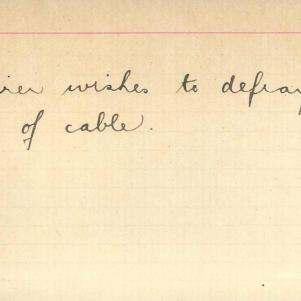 wishes to defray
of cable.